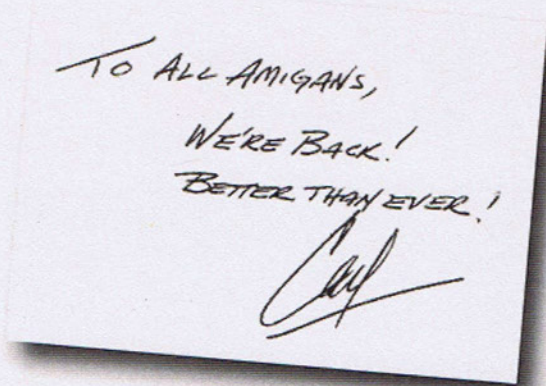 To All Amigans,
We're Back!
Better than ever!
Carl